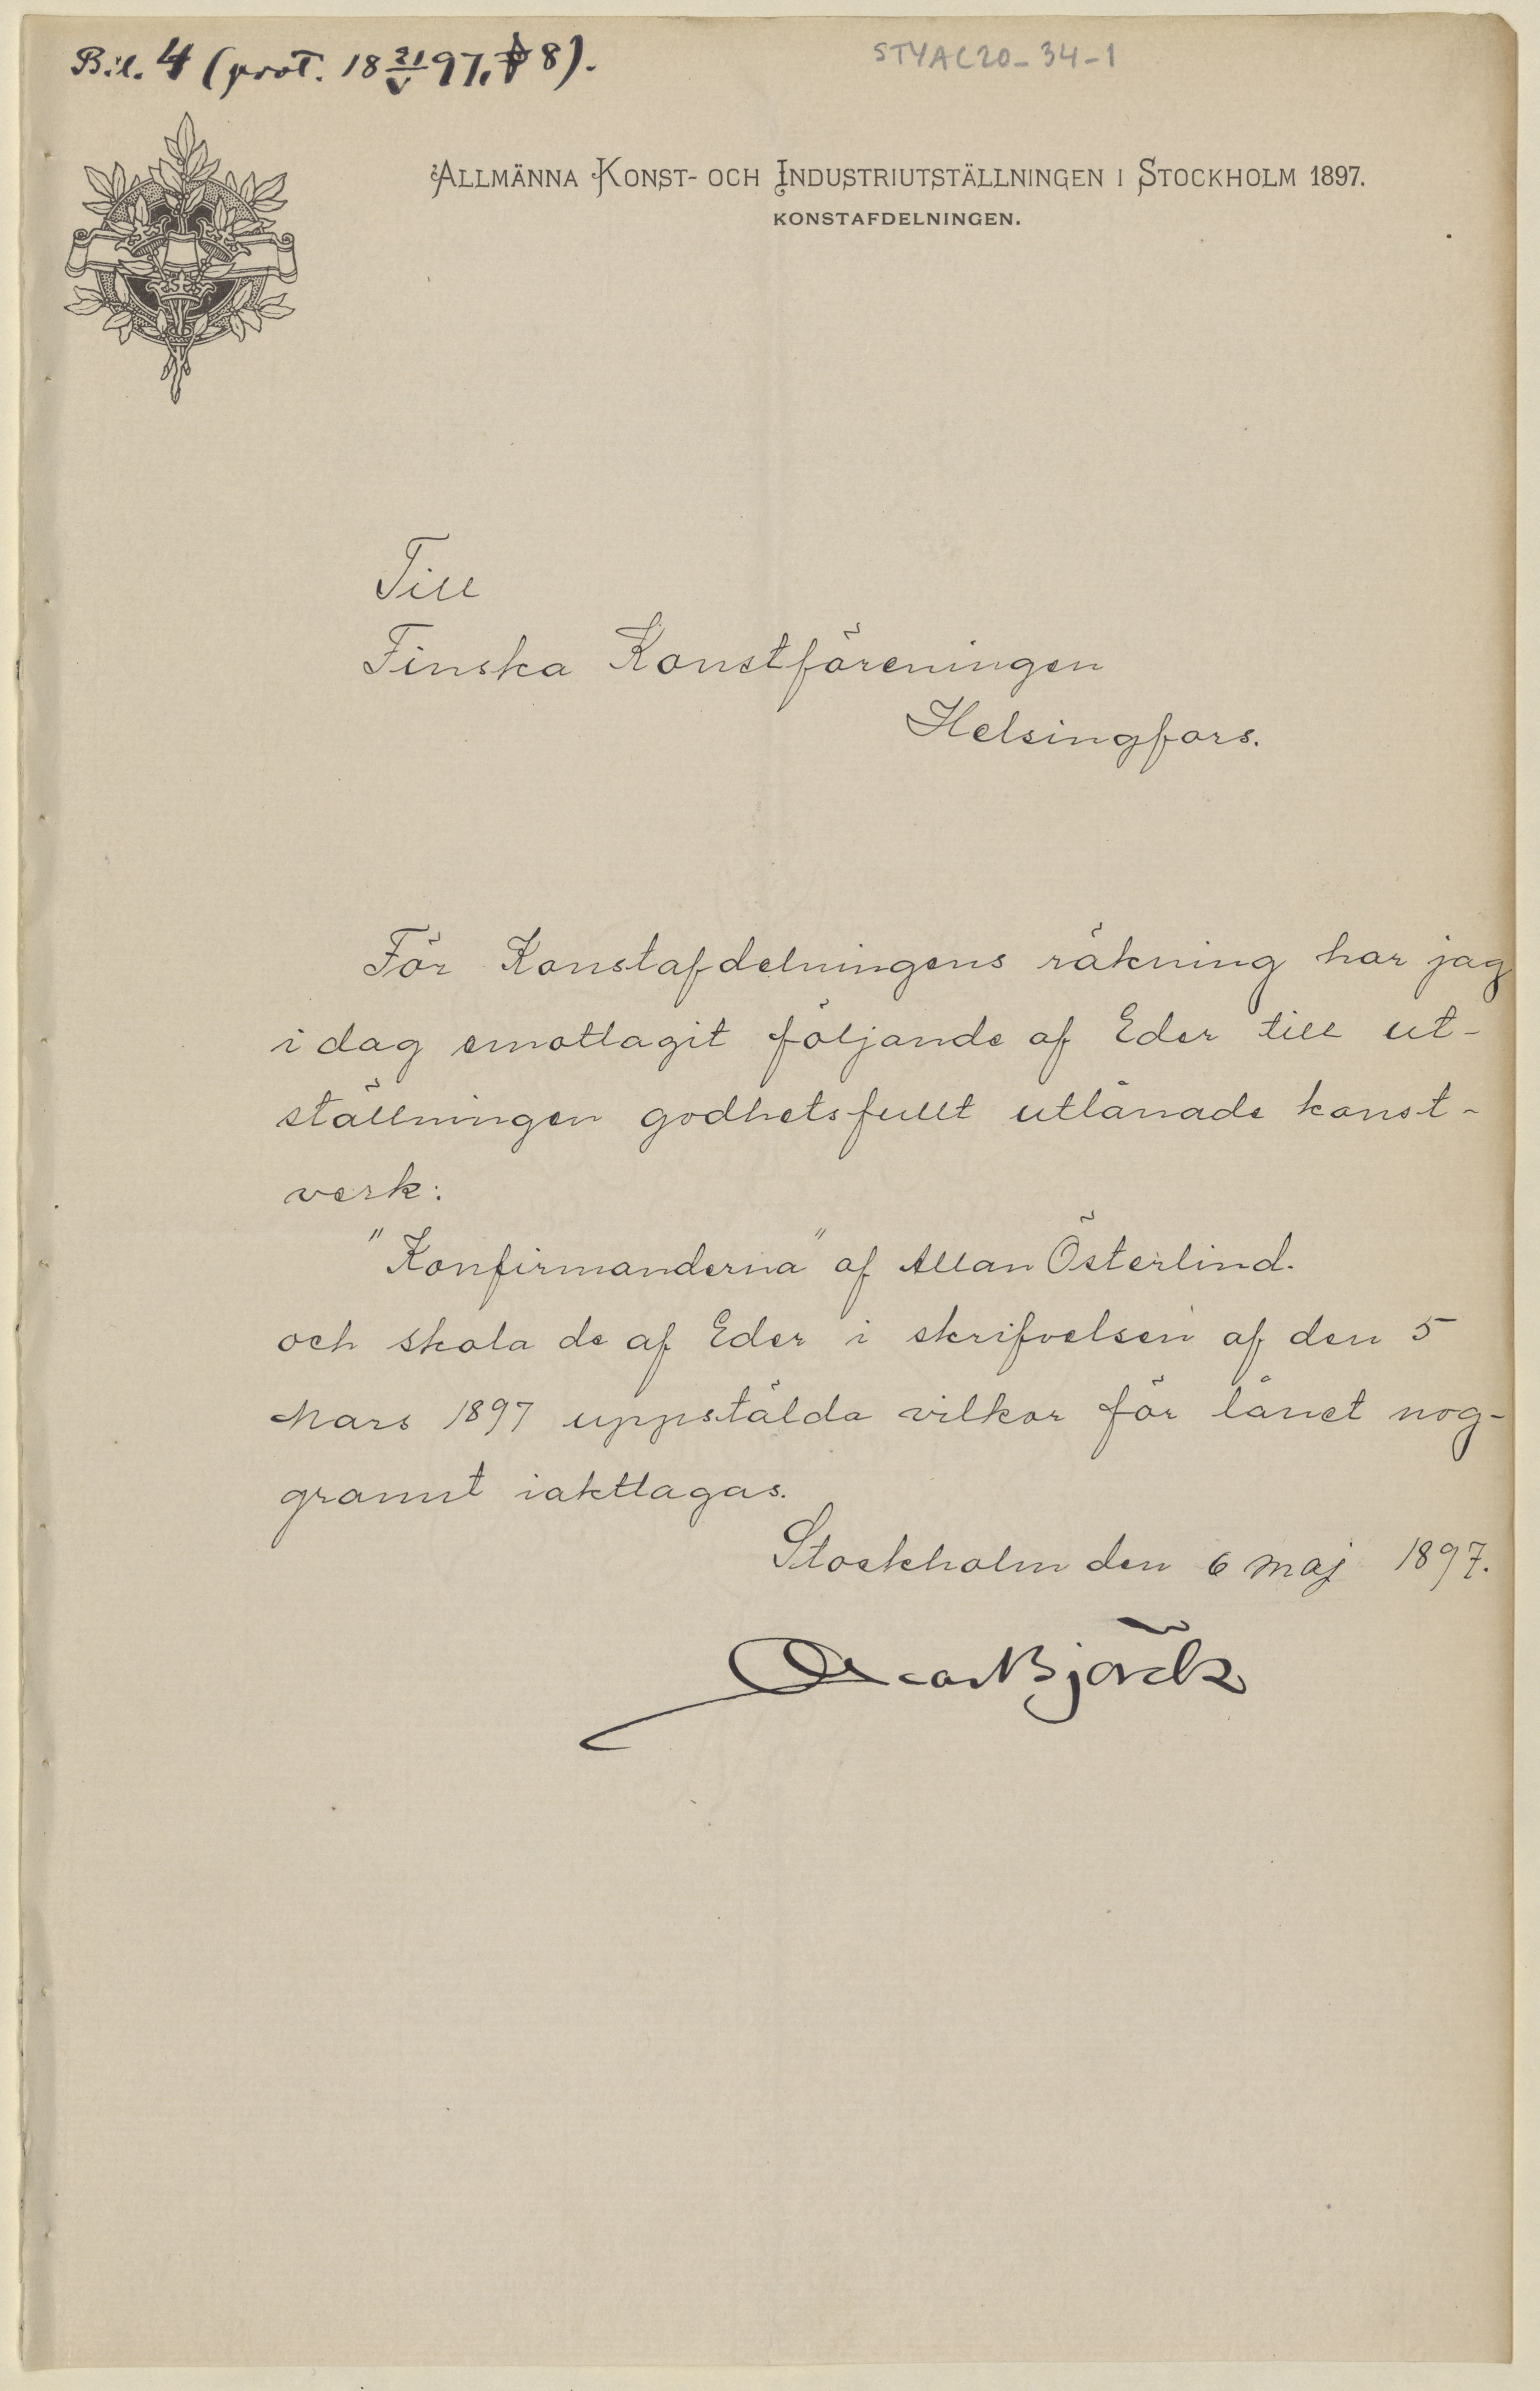 Bil. 4 (prot. 18 21/V 97, § 8).
STYAC20-34-1
ALLMÄNNA KONST- OCH INDUSTRIUTSTÄLLNINGEN I STOCKHOLM 1897.
KONSTAFDELNINGEN.
Till
Finska Konstföreningen
Helsingfors.
För Konstafdelningens räkning har jag
i dag emottagit följande af Eder till ut-
ställningen godhetsfullt utlånade konst-
verk:
"Konfirmanderna" af Allan Österlind.
och skola de af Eder i skrifvelsen af den 5
Mars 1897 uppstälda vilkor för lånet nog-
grannt iakttagas.
Stockholm den 6 maj 1897.
Oscar Björck